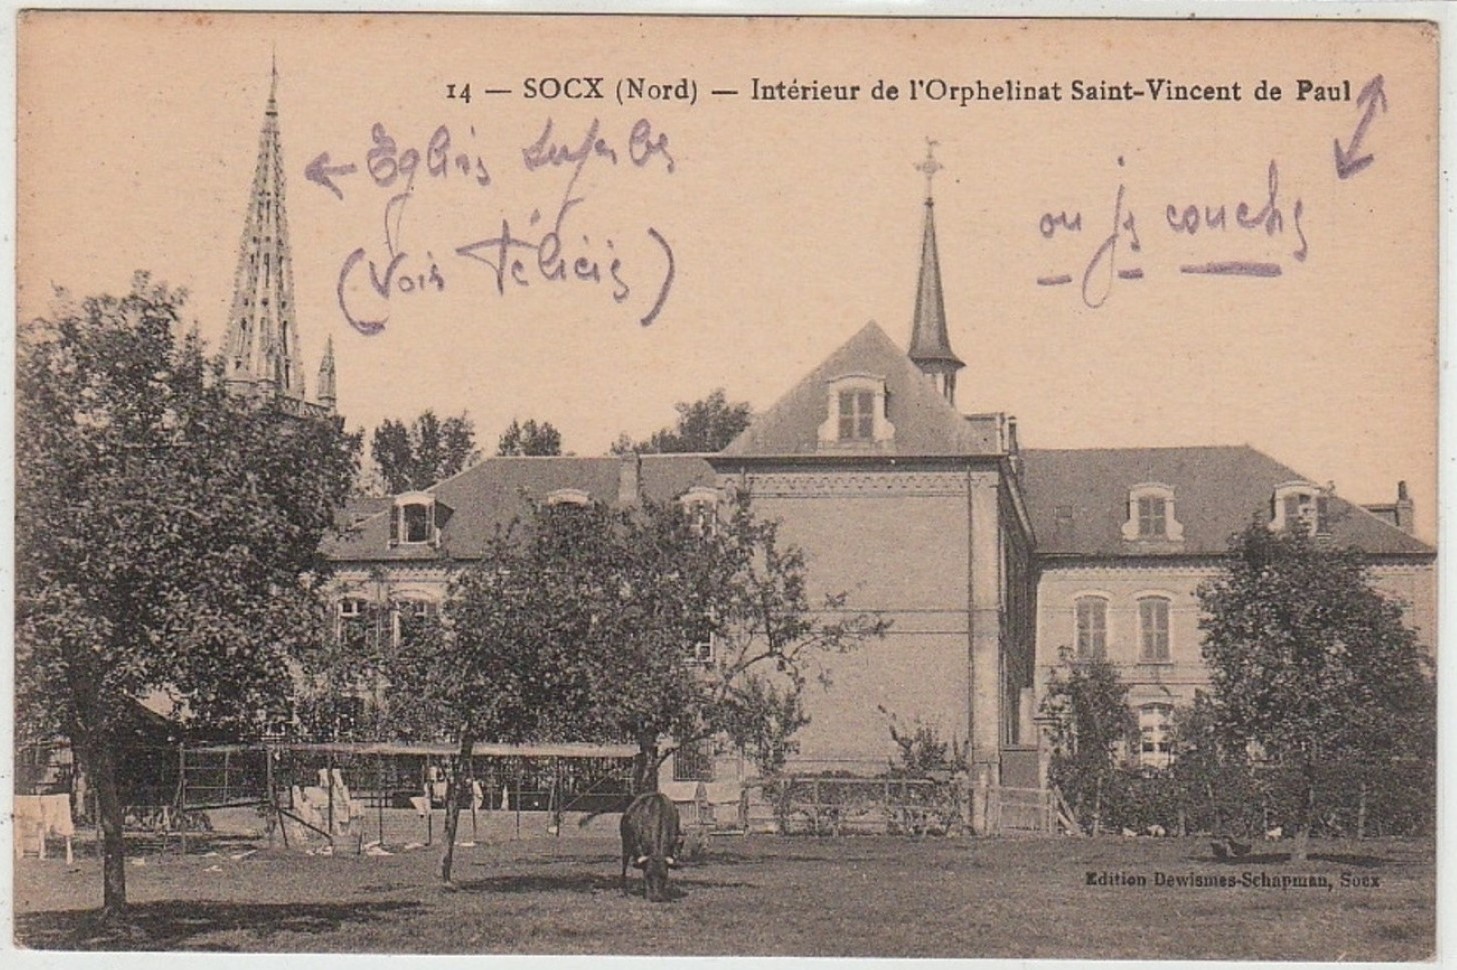 14 — SOCX (Nord) — Intérieur de l'Orphelinat Saint-Vincent de Paul
← Eglise superbe
(Voir Félicie)
ou je couche
Edition Dewismes-Schapman, Socx